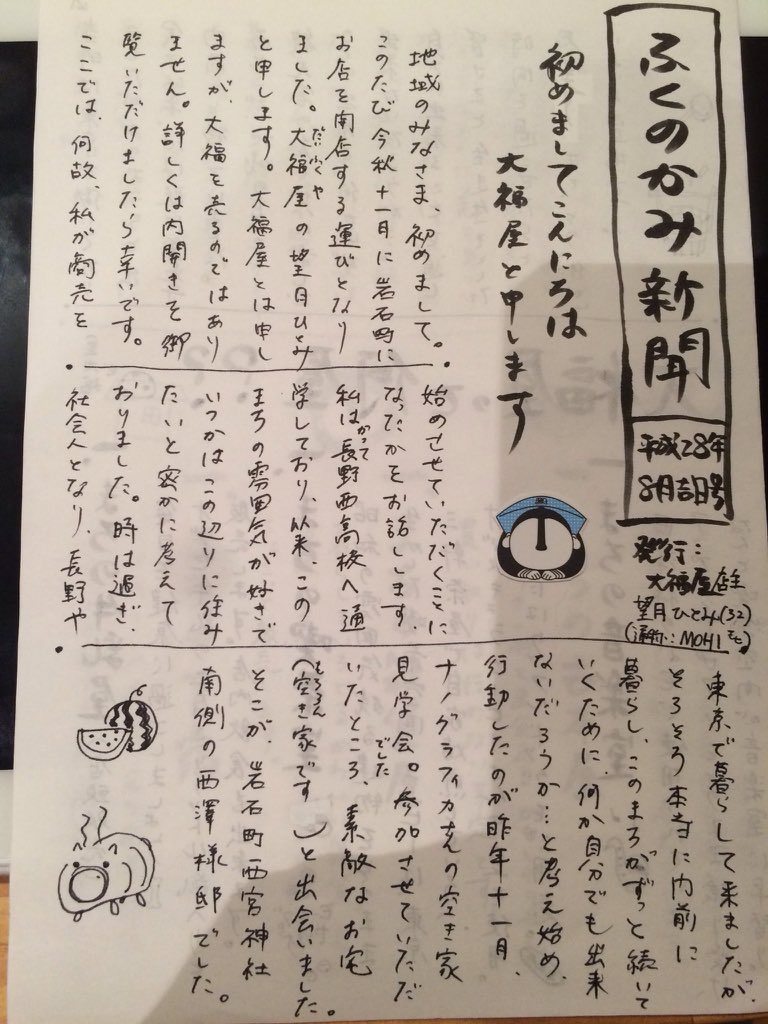 ふくのかみ新聞
平成28年
8月吉日号
発行:
大福屋店主
望月ひとみ(32)
(通称:MOHIモヒ)
初めましてこんにちは
大福屋と申します
地域のみなさま、初めまして。
このたび今秋十一月に岩石町に
お店を開店する運びとなり
ました。大福屋の望月ひとみ
だいふくや
と申します。大福屋とは申し
ますが、大福を売るのではあり
ません。詳しくは内開きを御
覧いただけましたら幸いです。
ここでは、何故、私が商売を
始めさせていただくことに
なったかをお話しします。
私はかつて長野西高校へ通
学しており、以来、この
まちの雰囲気が好きで
いつかはこの辺りに住み
たいと密かに考えて
おりました。時は過ぎ、
社会人となり、長野や
東京で暮らして来ましたが、
そろそろ本寺に門前に
暮らし、このまちがずっと続いて
いくために、何か自分でも出来
ないだろうか…と考え始め、
行動したのが昨年十一月、
ナノグラフィカさんの空き家
見学会でした。参加させていただ
いたところ、素敵なお宅
(もちろん空き家です)と出会いました。
そこが、岩石町西宮神社
南側の西澤様邸でした。